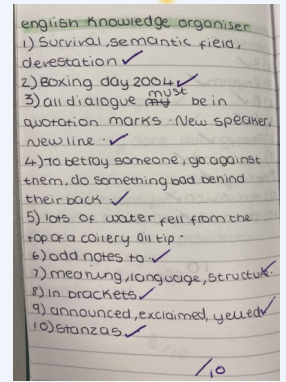 english knowledge organiser
1) Survival, semantic field,
devestation
2) Boxing day 2004
3) all dialogue must be in
quotation marks. New speaker,
new line.
4) To betray someone, go against
them, do something bad behind
their back.
5) lots of water fell from the
top of a coilery oil tip.
6) add notes to.
7) meaning, language, structure.
8) in brackets
9) announced, exclaimed, yelled
10) stanzas
/10